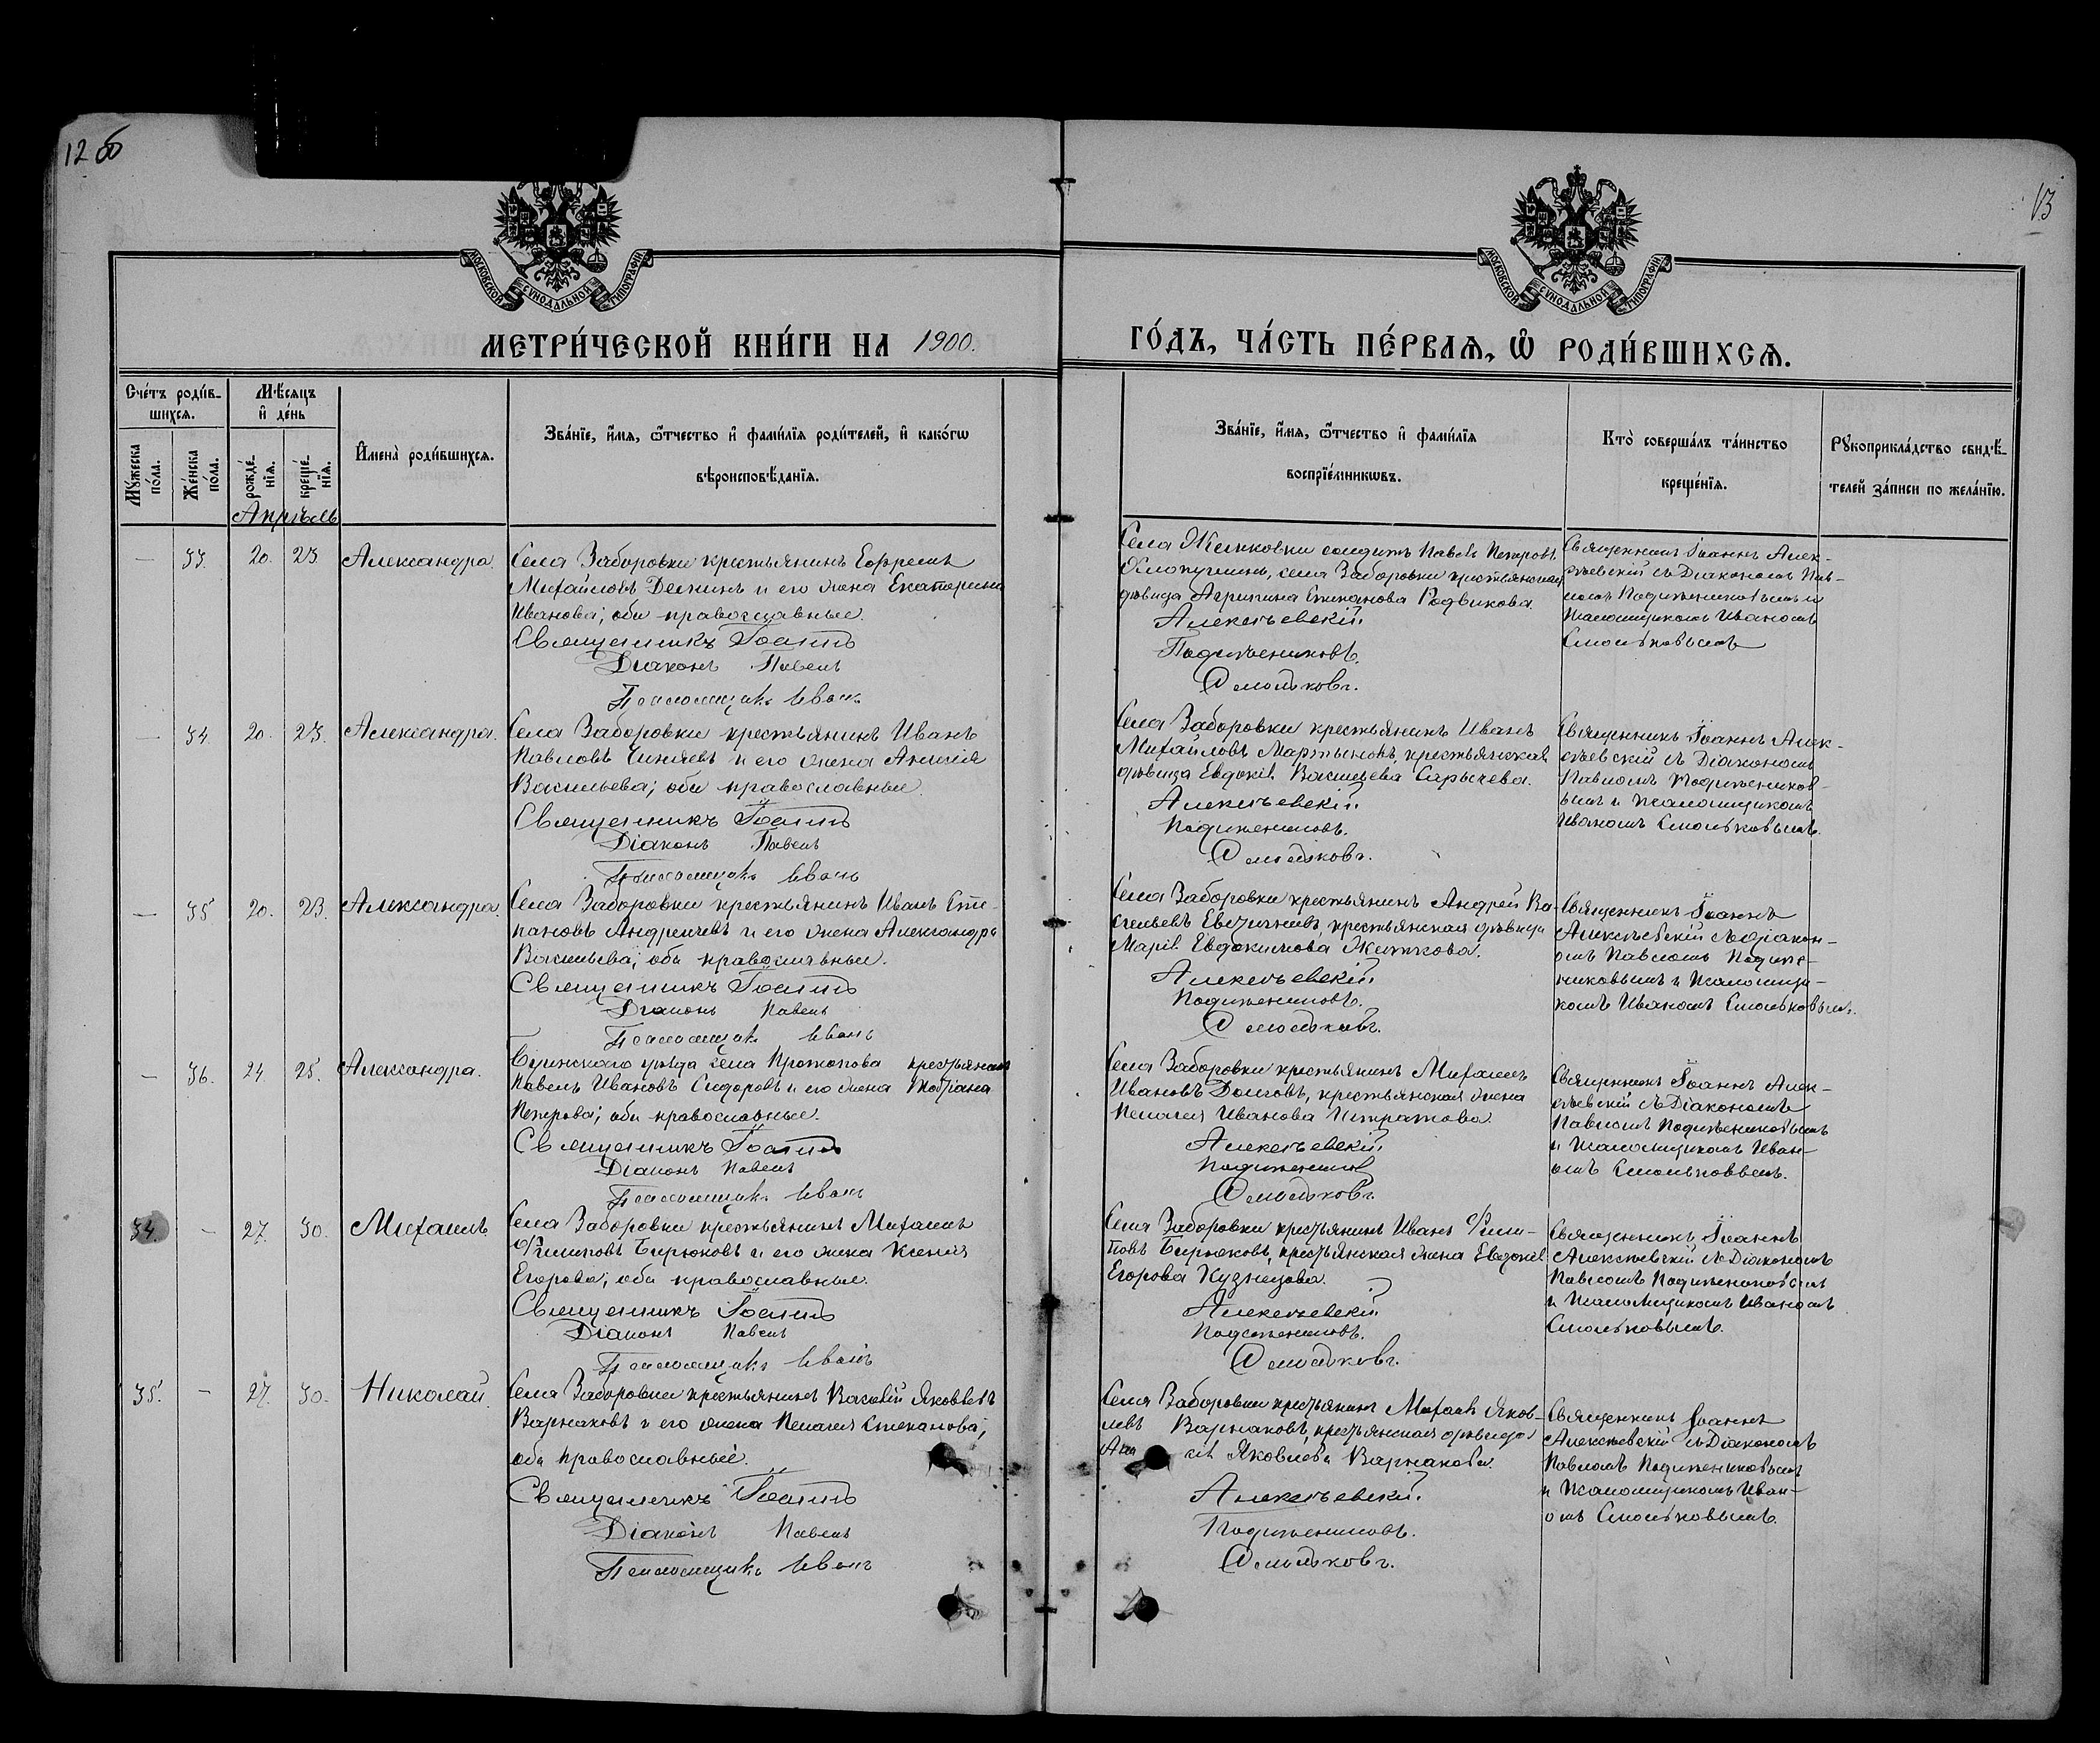 12 об
13
МОСКОВСКОЙ СУНОДАЛЬНОЙ ТИПОГРАФІИ
МОСКОВСКОЙ СУНОДАЛЬНОЙ ТИПОГРАФІИ
МЕТРИ́ЧЕСКОЙ КНИ́ГИ НА 1900.
ГО́ДЪ, ЧА́СТЬ ПЕ́РВАЯ, Ѡ РОДИ́ВШИХСЯ.
Сче́тъ роди́в-
шихся.
Мѣ́сяцъ
и де́нь
Мꙋ́жеска
по́ла.
Же́нска
по́ла.
рожде́-
нїя.
креще́-
нїя.
И҆мена̀ роди́вшихся.
Зва́нїе, и҆́мя, ѻ҆́тчество и҆ фами́лїя роди́телей, и҆ како́гѡ
вѣроисповѣ́данїя.
Зва́нїе, и҆́мя, ѻ҆́тчество и҆ фами́лїя
воспрїе́мникѡвъ.
Кто̀ соверша́лъ та́инство
креще́нїя.
Рꙋкоприкла́дство свидѣ́-
телей за́писи по жела́нїю.
Апрѣль
— 33. 20. 23. Александра.
Села Заборовки крестьянинъ Ефремъ
Михайловъ и его жена Екатерина
Иванова; оба православные.
Священникъ Іоаннъ
Діаконъ Павелъ
Псаломщикъ Иванъ
Села солдатъ Павелъ Петровъ
села Заборовки крестьянская
дѣвица Агрипина Степанова
Алексѣевскій.
Подъячениковъ.
Смольковъ.
Священникъ Іоаннъ Алек-
сѣевскій съ Діакономъ Пав-
ломъ
Псаломщикомъ Иваномъ
Смольковымъ
— 34. 20. 23. Александра.
Села Заборовки крестьянинъ Иванъ
Павловъ и его жена
Васильева; оба православные.
Священникъ Іоаннъ
Діаконъ Павелъ
Псаломщикъ Иванъ
Села Заборовки крестьянинъ Иванъ
Михайловъ Мартыновъ, крестьянская
дѣвица Евдокія Сарычева.
Алексѣевскій.
Смольковъ.
Священникъ Іоаннъ Алек-
сѣевскій съ Діакономъ
Павломъ
и Псаломщикомъ
Иваномъ Смольковымъ.
— 35 20. 23. Александра.
Села Заборовки крестьянинъ Иванъ Сте-
пановъ и его жена Александра
Васильева; оба православные.
Священникъ Іоаннъ
Діаконъ Павелъ
Псаломщикъ Иванъ
Села Заборовки крестьянинъ Андрей Ва-
сильевъ крестьянская дѣвица
Марія Евдокимова
Алексѣевскій.
Смольковъ.
Священникъ Іоаннъ
Алексѣевскій съ Діакон-
омъ Павломъ
и Псаломщи-
комъ Иваномъ Смольковымъ.
— 36. 24. 25. Александра.
уѣзда села крестьянинъ
Павелъ Ивановъ Сидоровъ и его жена Татіана
Петрова; оба православные.
Священникъ Іоаннъ
Діаконъ Павелъ
Псаломщикъ Иванъ
Села Заборовки крестьянинъ Михаилъ
Ивановъ Долговъ, крестьянская жена
Пелагея Иванова
Алексѣевскій
Смольковъ.
Священникъ Іоаннъ Алек-
сѣевскій съ Діакономъ
Павломъ
и Псаломщикомъ Иван-
омъ Смольковымъ.
34. — 27. 30. Михаилъ
Села Заборовки крестьянинъ Михаилъ
Филиповъ Бирюковъ и его жена Ксенія
Егорова; оба православные.
Священникъ Іоаннъ
Діаконъ Павелъ
Псаломщикъ Иванъ
Села Заборовки крестьянинъ Иванъ Фили-
повъ Бирюковъ, крестьянская жена Евдокія
Егорова Кузнецова.
Алексѣевскій
Смольковъ.
Священникъ Іоаннъ
Алексѣевскій съ Діакономъ
Павломъ
и Псаломщикомъ Иваномъ
Смольковымъ.
35. — 27. 30. Николай.
Села Заборовки крестьянинъ Василій Яковлевъ
Варнаковъ и его жена Пелагея Степанова;
оба православные.
Священникъ Іоаннъ
Діаконъ Павелъ
Псаломщикъ Иванъ
Села Заборовки крестьянинъ Михаилъ Яков-
левъ Варнаковъ, крестьянская дѣвица
Яковлева Варнакова.
Алексѣевскій.
Смольковъ.
Священникъ Іоаннъ
Алексѣевскій съ Діакономъ
Павломъ
и Псаломщикомъ Иван-
омъ Смольковымъ.